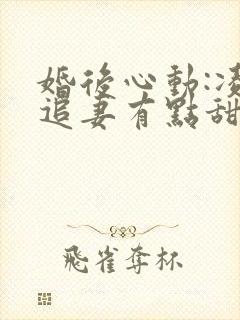 婚後心動:凌
追妻有點甜
飛雀奪杯